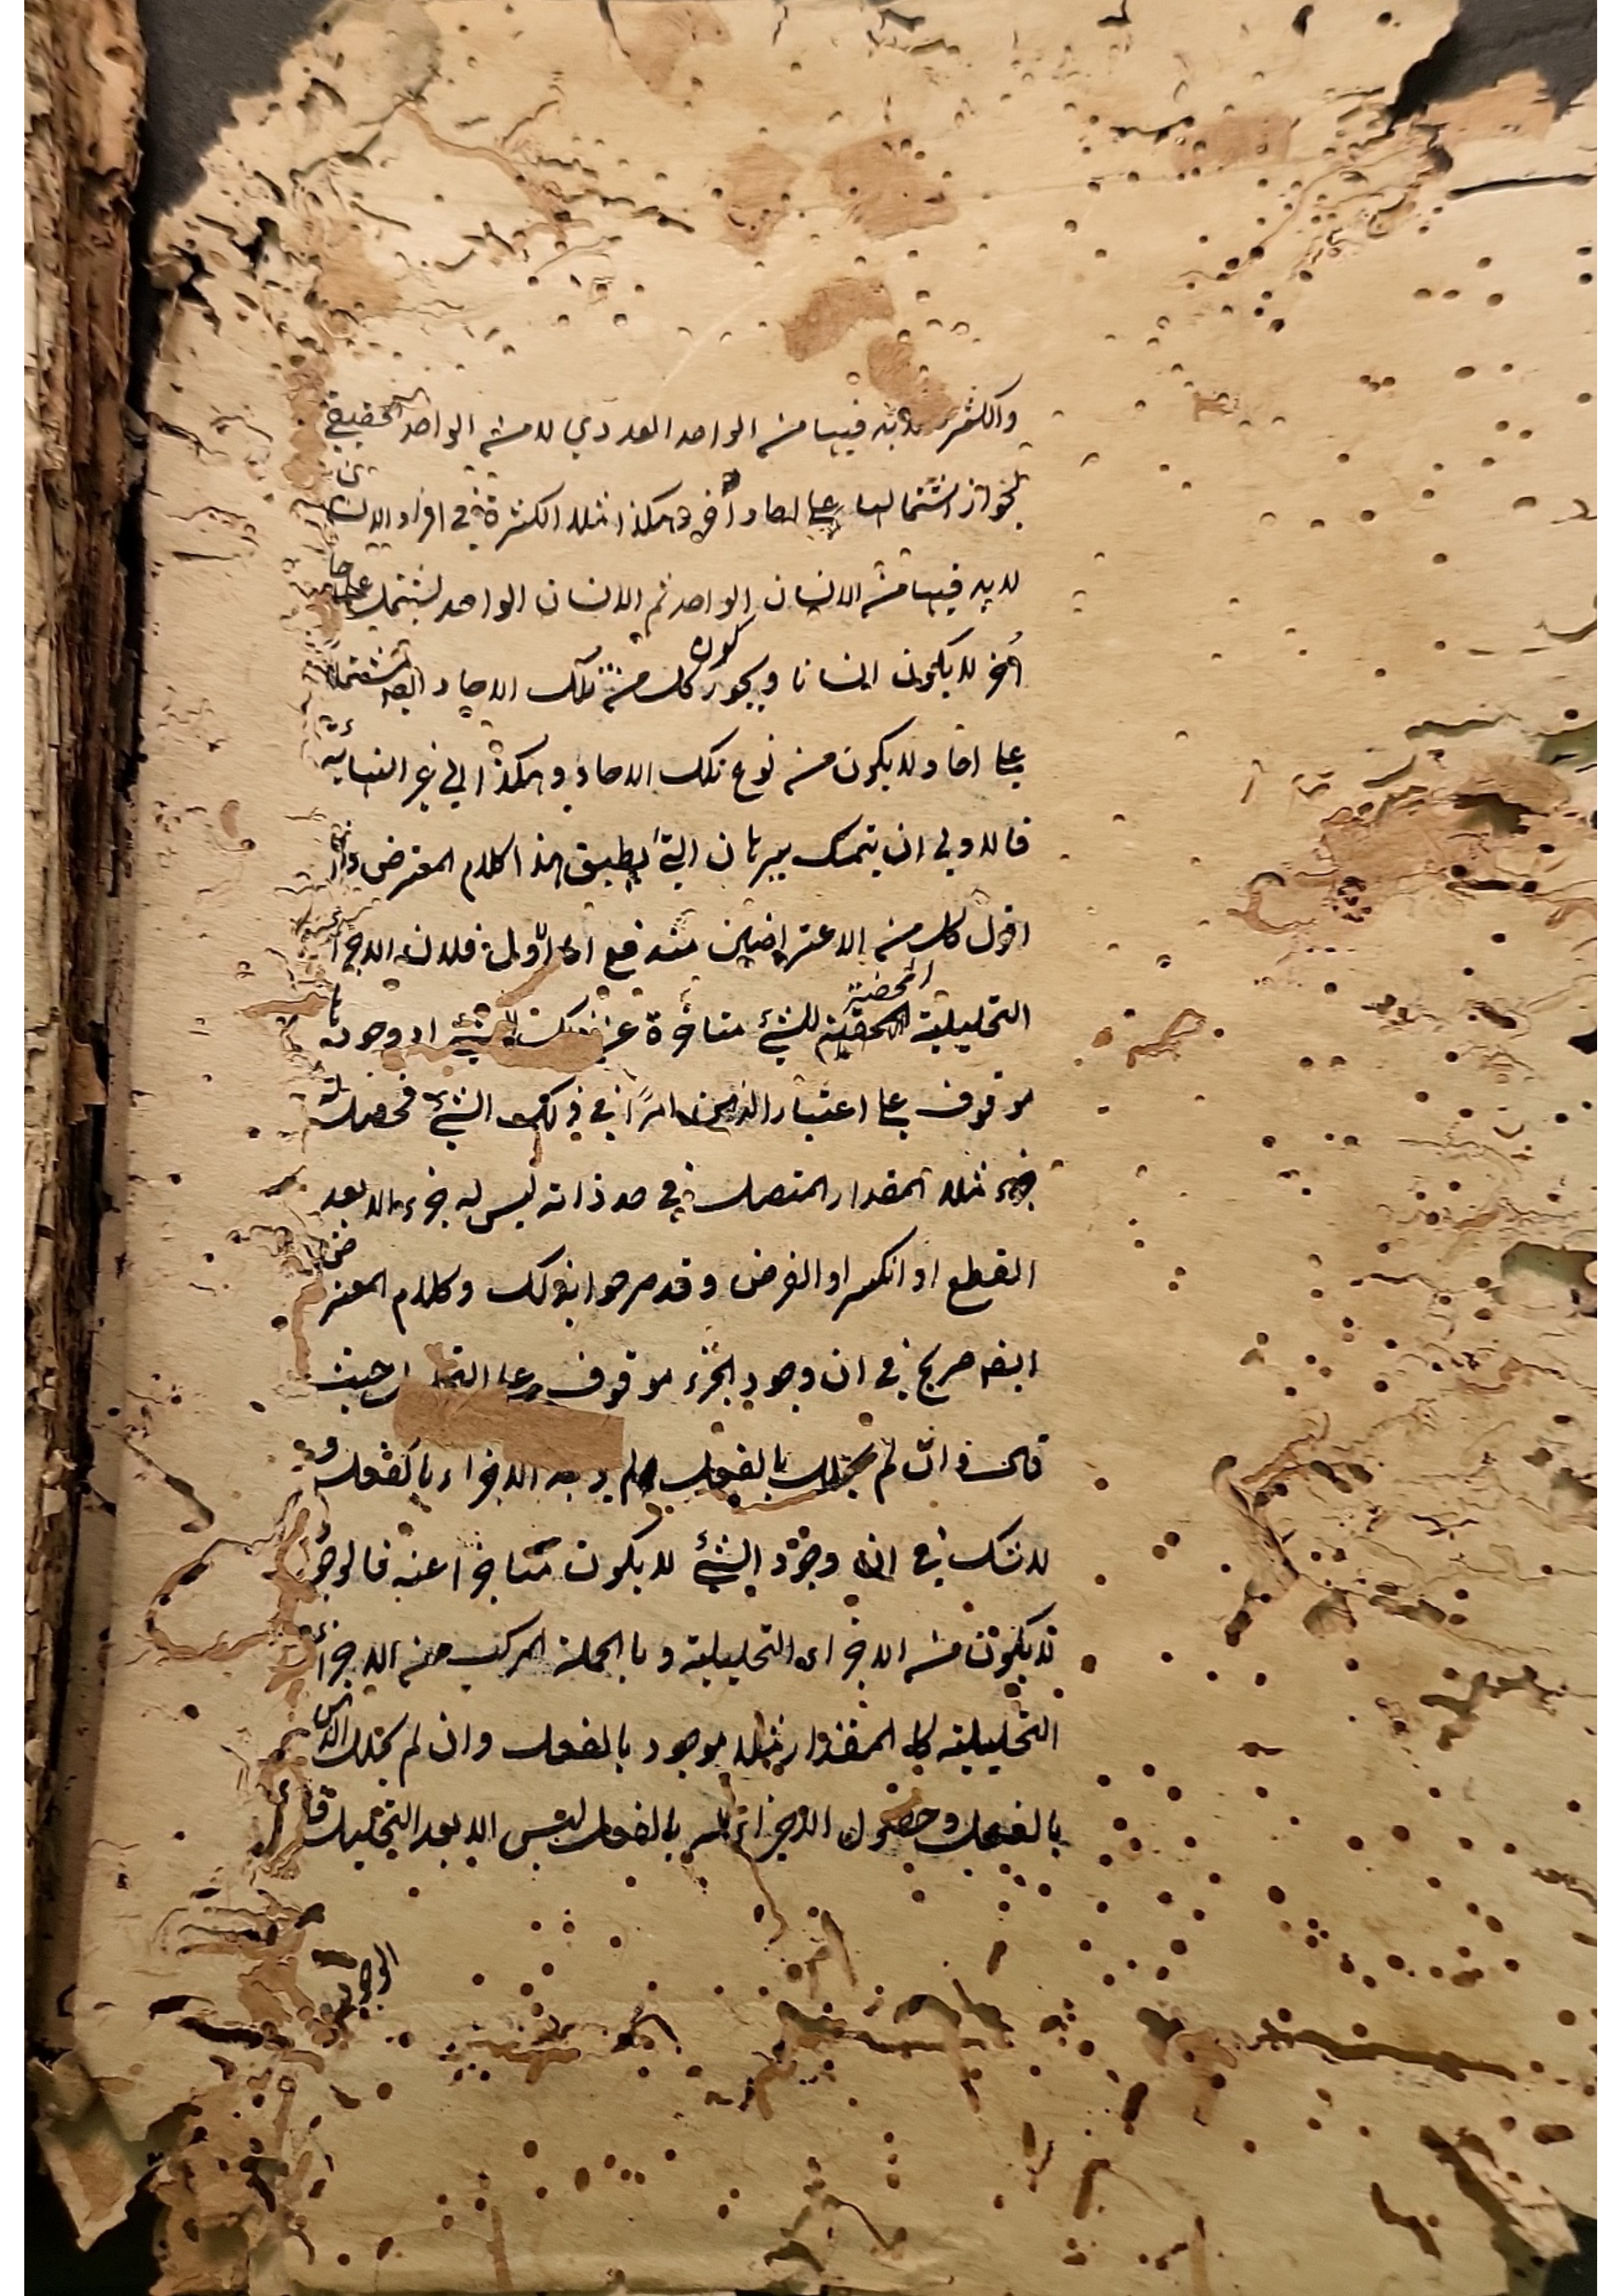 والكثرة لابد فيها من الواحد العددي لا من الواحد الحقيقي
لجواز اشتمالها على احاد أخر وهكذا مثلا الكثرة في افراد الانسان
لابد فيها من الانسان الواحد ثم الانسان الواحد يشتمل على احاد
أخر لا يكون انسانا ويجوز كون كل من تلك الاحاد ايضا مشتملا
على احاد لا يكون من نوع تلك الاحاد وهكذا الى غير النهاية
فالاولى ان يتمسك ببرهان التطبيق هذا كلام المعترض وانا
اقول كل من الاعتراضين مندفع اما الاول فلان الاجزاء
التحليلية المحضة للشئ متاخرة عن ذلك الشئ اذ وجودها
موقوف على اعتبار الذهن امرًا في ذلك الشئ فحصلت
جزء مثلا المقدار المتصل في حد ذاته ليس له جزء الا بعد
القطع او الكسر او الفرض وقد صرحوا بذلك وكلام المعترض
ايضا صريح في ان وجود الجزء موقوف على حيث
قال وان لم يحلل بالفعل لم يوجد الاجزاء بالفعل و
لا شك في ان وجود الشئ لا يكون متاخرا عنه فالوجود
لا يكون من الاجزاء التحليلية وبالجملة المركب من الاجزاء
التحليلية كالمقدار مثلا موجود بالفعل وان لم يحلل الذهن
بالفعل وحصول الاجزاء له بالفعل ليس الا بعد التحليل
الوجود